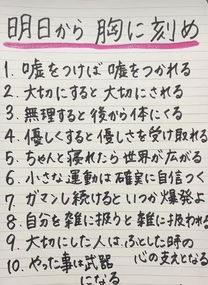 明日から 胸に刻め
1. 嘘をつけば 嘘をつかれる
2. 大切にすると 大切にされる
3. 無理すると 後から体にくる
4. 優しくすると 優しさを受け取れる
5. ちゃんと寝れたら 世界が広がる
6. 小さな運動は 確実に自信つく
7. ガマンし続けると いつか爆発よ
8. 自分を雑に扱うと 雑に扱われる
9. 大切にした人は、ふとした時の
心の支えとなる
10. やった事は武器
になる